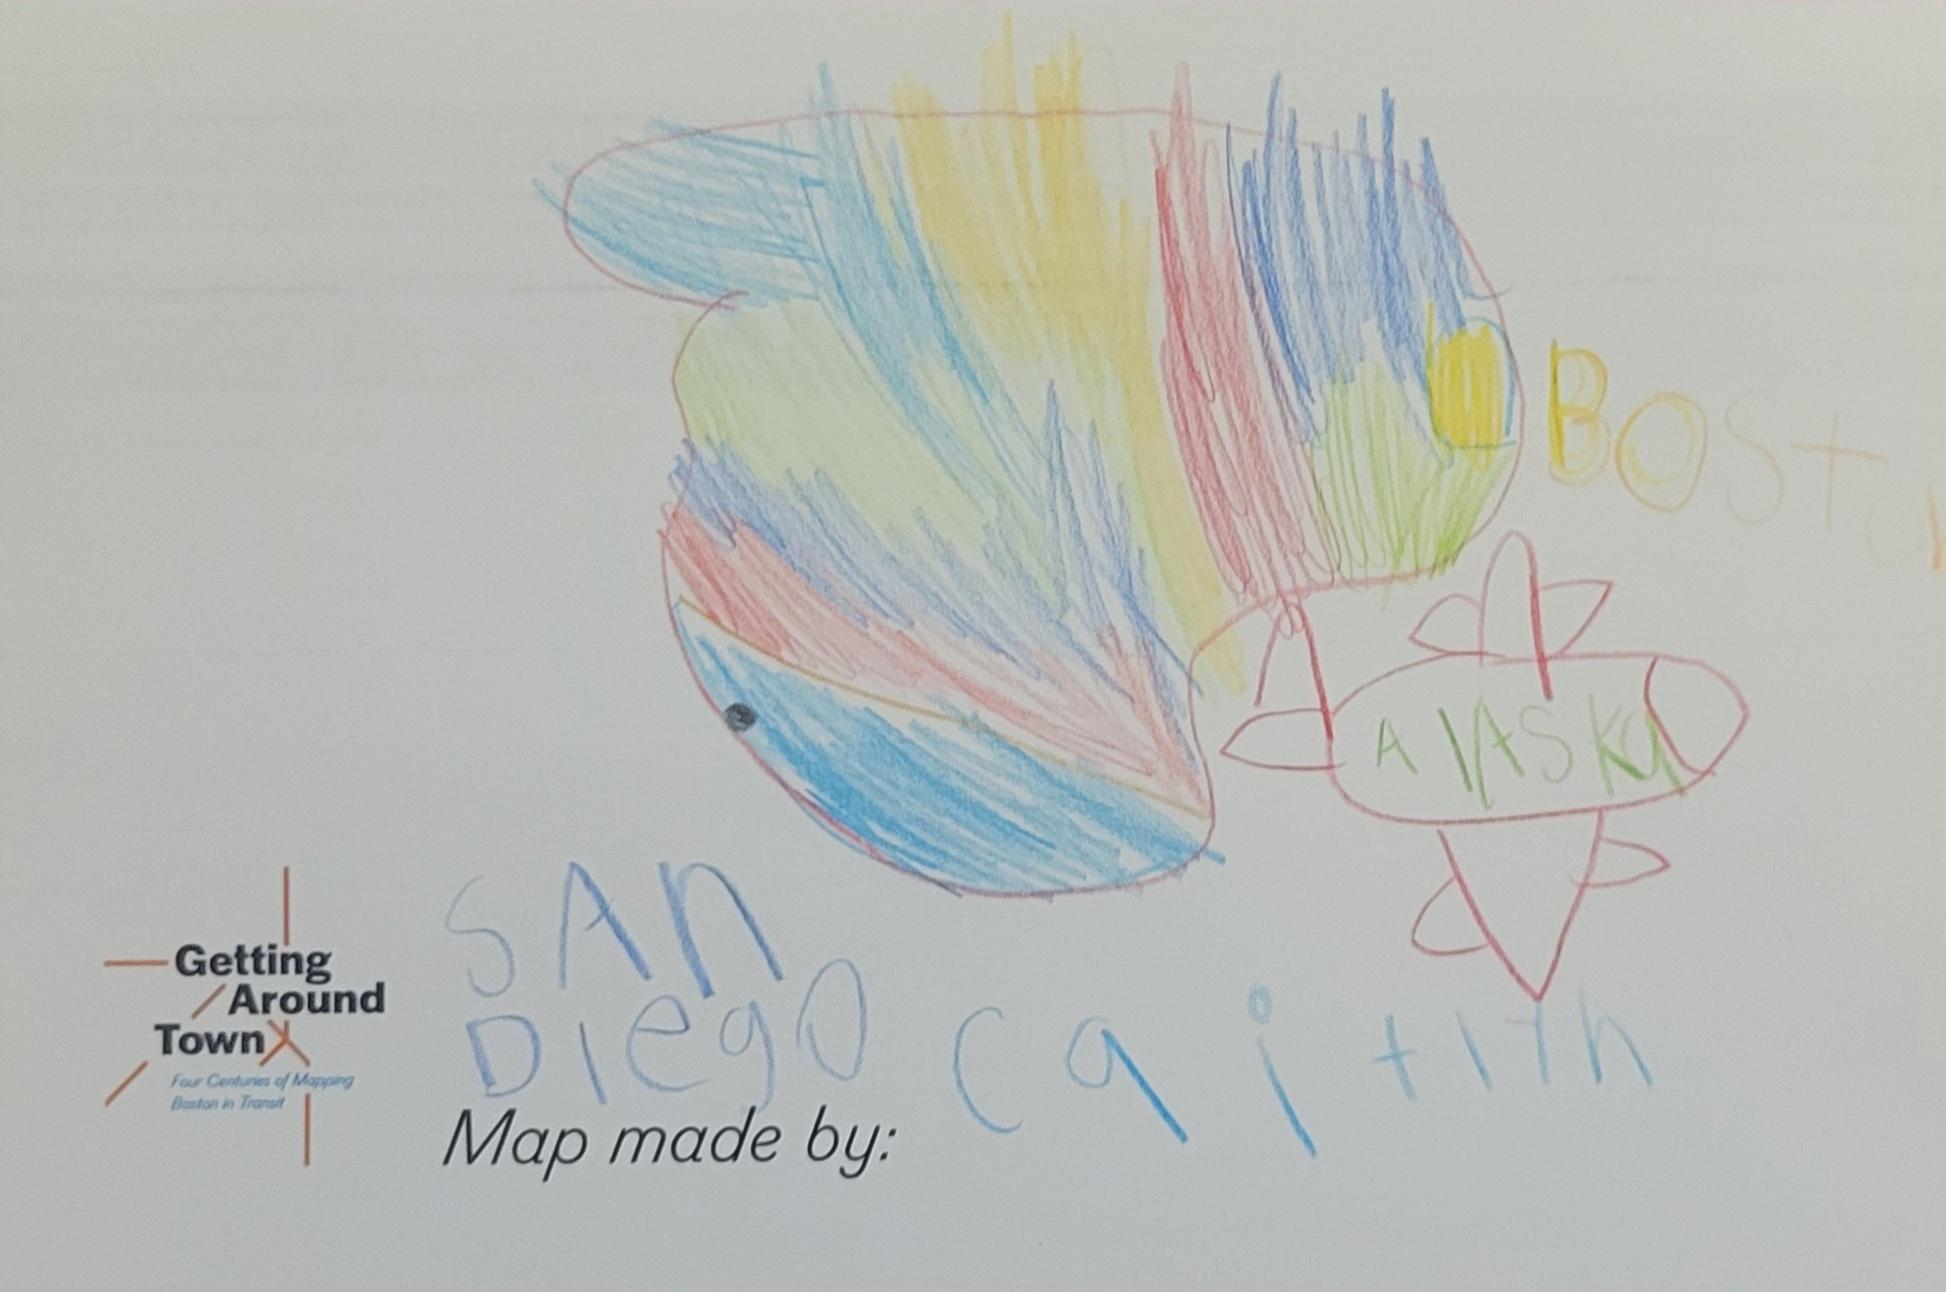 BOSton
AlASKa
SAn
DIegO
Getting
Around
Town
Four Centuries of Mapping
Boston in Transit
Map made by: Caitlyn